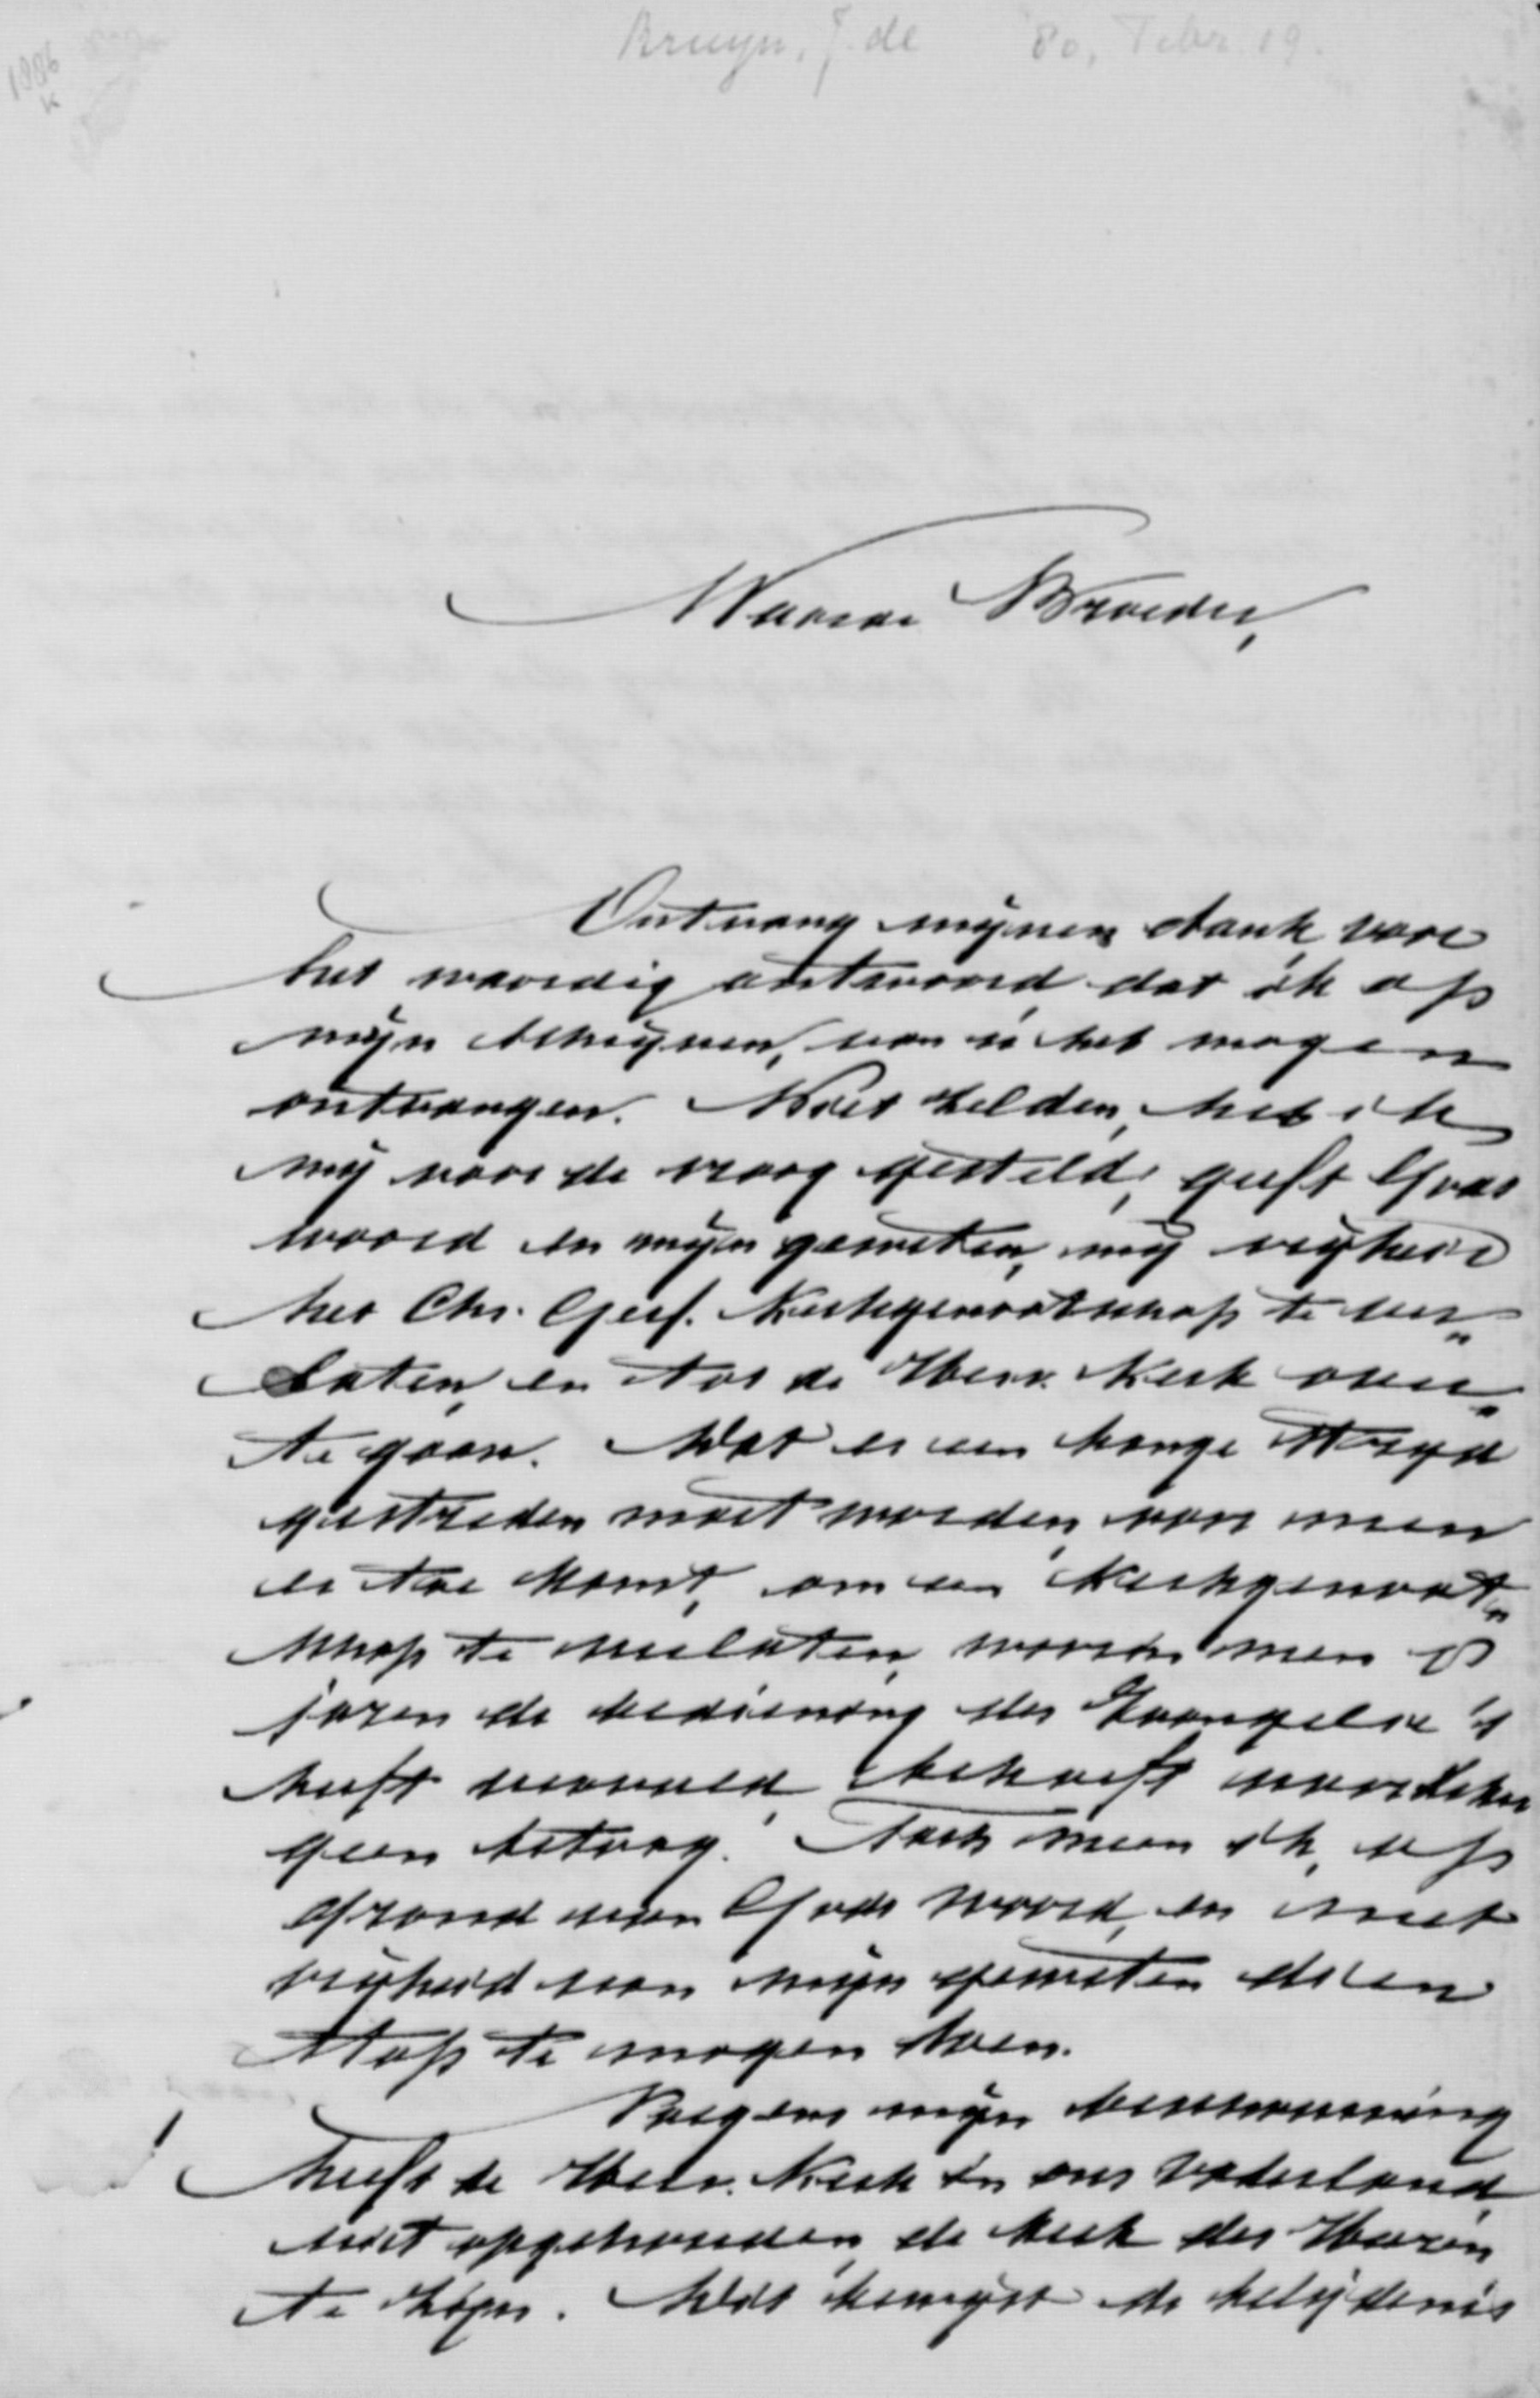 Bruyn, J. de '80, Febr. 19.
1886
K
Waarde Broeder,
Ontvang mijnen dank voor
het waardig antwoord dat ik op
mijn schrijven, van u heb mogen
ontvangen. Niet zelden, heb ik
mij voor de vraag gesteld, geeft Gods
woord en mijn geweten, mij vrijheid
het Chr. Geref. Kerkgenootschap te ver„
laten, en tot de Herv. Kerk over„
te gaan. Dat er een bange strijd
gestreden moet worden, voor men
er toe komt, om een Kerkgenoot„
schap te verlaten, waarin men 8
jaren de bediening des Evangelie's
heeft vervuld, behoeft voorzeker
geen betoog. Toch meen ik, op
grond van Gods woord, en met
vrijheid van mijn geweten dien
stap te mogen doen.
Volgens mijn beschouwing
heeft de Herv. Kerk in ons Vaderland
niet opgehouden, de kerk des Heeren
te zijn. Dit bewijst de belijdenis